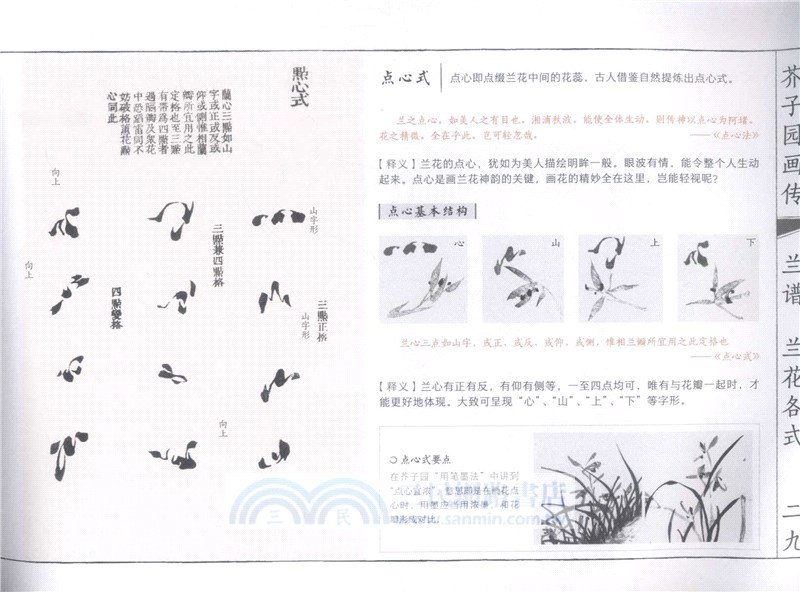 點心式
蘭心三點如山
字或正或反或
仰或側惟相蘭
瓣所宜用之此
定格也至三點
有帶爲四點者
過隔瓣及衆花
中恐語雷同不
妨破格葩花點
心同此
向上
向上
山字形
三點兼四點格
四點變格
三點正格
山字形
向上
点心式
点心即点缀兰花中间的花蕊，古人借鉴自然提炼出点心式。
兰之点心，如美人之有目也。湘浦秋波，能使全体生动，则传神以点心为阿堵。
花之精微，全在乎此，岂可轻忽哉。
——《点心法》
【释义】兰花的点心，犹如为美人描绘明眸一般。眼波有情，能令整个人生动
起来。点心是画兰花神韵的关键，画花的精妙全在这里，岂能轻视呢？
点心基本结构
心
山
上
下
兰心三点如山字，或正、或反、或仰、或侧，惟相兰瓣所宜用之此定格也
——《点心式》
【释义】兰心有正有反，有仰有侧等，一至四点均可，唯有与花瓣一起时，才
能更好地体现。大致可呈现“心”、“山”、“上”、“下”等字形。
点心式要点
在芥子园“用笔墨法”中讲到
“点心宜浓”，意思即是在兰花点
心时，用墨应当用浓墨，和花
瓣形成对比。
三民網路書店
www.sanmin.com.tw
三 民
芥子园画传
兰谱
兰花各式
二九